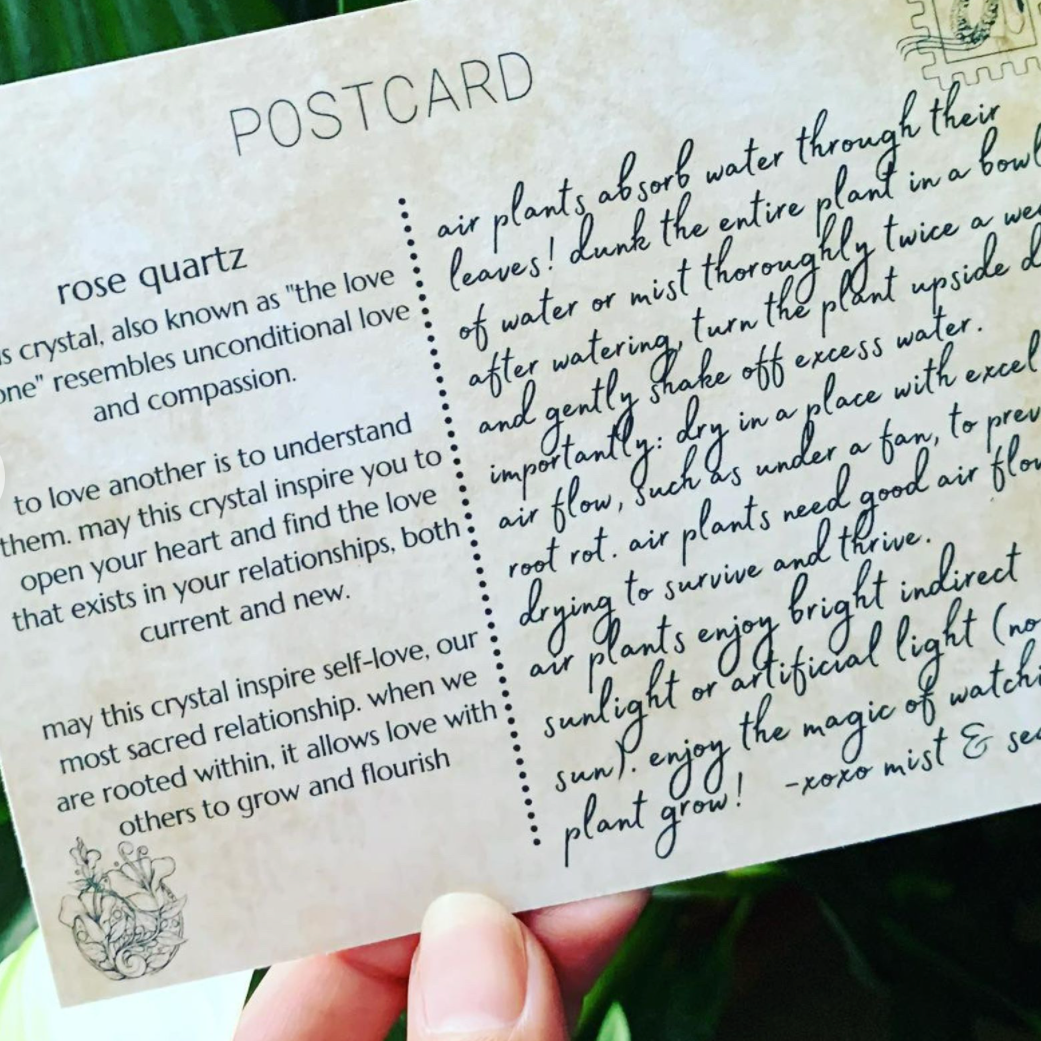 POSTCARD
rose quartz
crystal, also known as "the love
resembles unconditional love
and compassion.
to love another is to understand
them. may this crystal inspire you to
open your heart and find the love
that exists in your relationships, both
current and new.
may this crystal inspire self-love, our
most sacred relationship. when we
are rooted within, it allows love with
others to grow and flourish
air plants absorb water through their
leaves! dunk the entire plant in a bowl
of water or mist thoroughly twice a
after watering, turn the plant upside
and gently shake off excess water.
importantly: dry in a place with
air flow, such as under a fan, to
root rot. air plants need good air
drying to survive and thrive.
air plants enjoy bright indirect
sunlight or artificial light
sun). enjoy the magic of
plant grow! -xoxo mist &